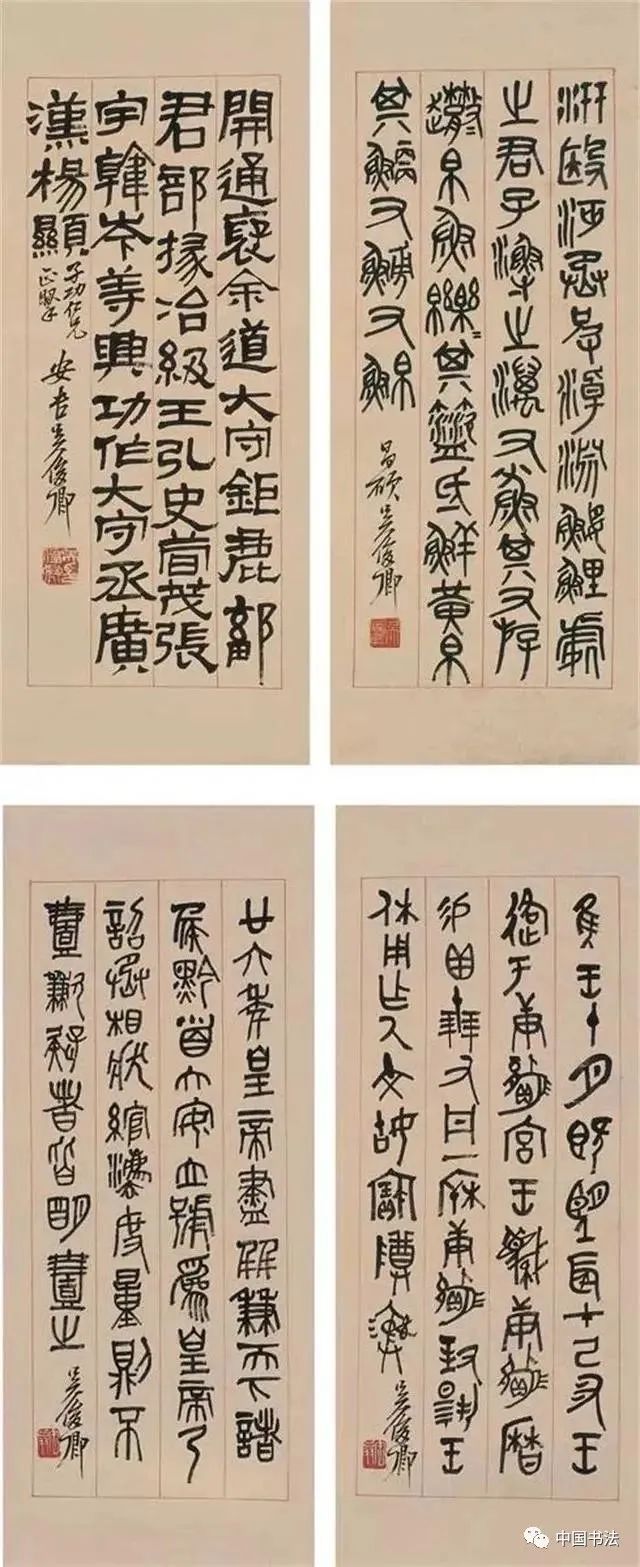 汧殹沔丞皮淖淵鰋鯉處
之君子漁之澫又小魚其斿
帛魚皪其盜氐鮮黃帛
其又又
昌碩吳俊卿
開通褒余道大守鉅鹿鄐
君部掾冶級王弘史荀茂張
宇韓岑等興功作大守丞廣
漢楊顯
子功仁兄
正
安吉吳俊卿
隹王十月既望辰才己丑王
于庚嬴宮王蔑庚嬴曆
貝十朋又丹一庚嬴對揚王
休用乍氒文姑寶尊彝
吳俊卿
廿六年皇帝盡併兼天下諸
侯黔首大安立號為皇帝乃
詔丞相狀綰灋度量則不
壹歉疑者皆明壹之
吳俊卿
中国书法